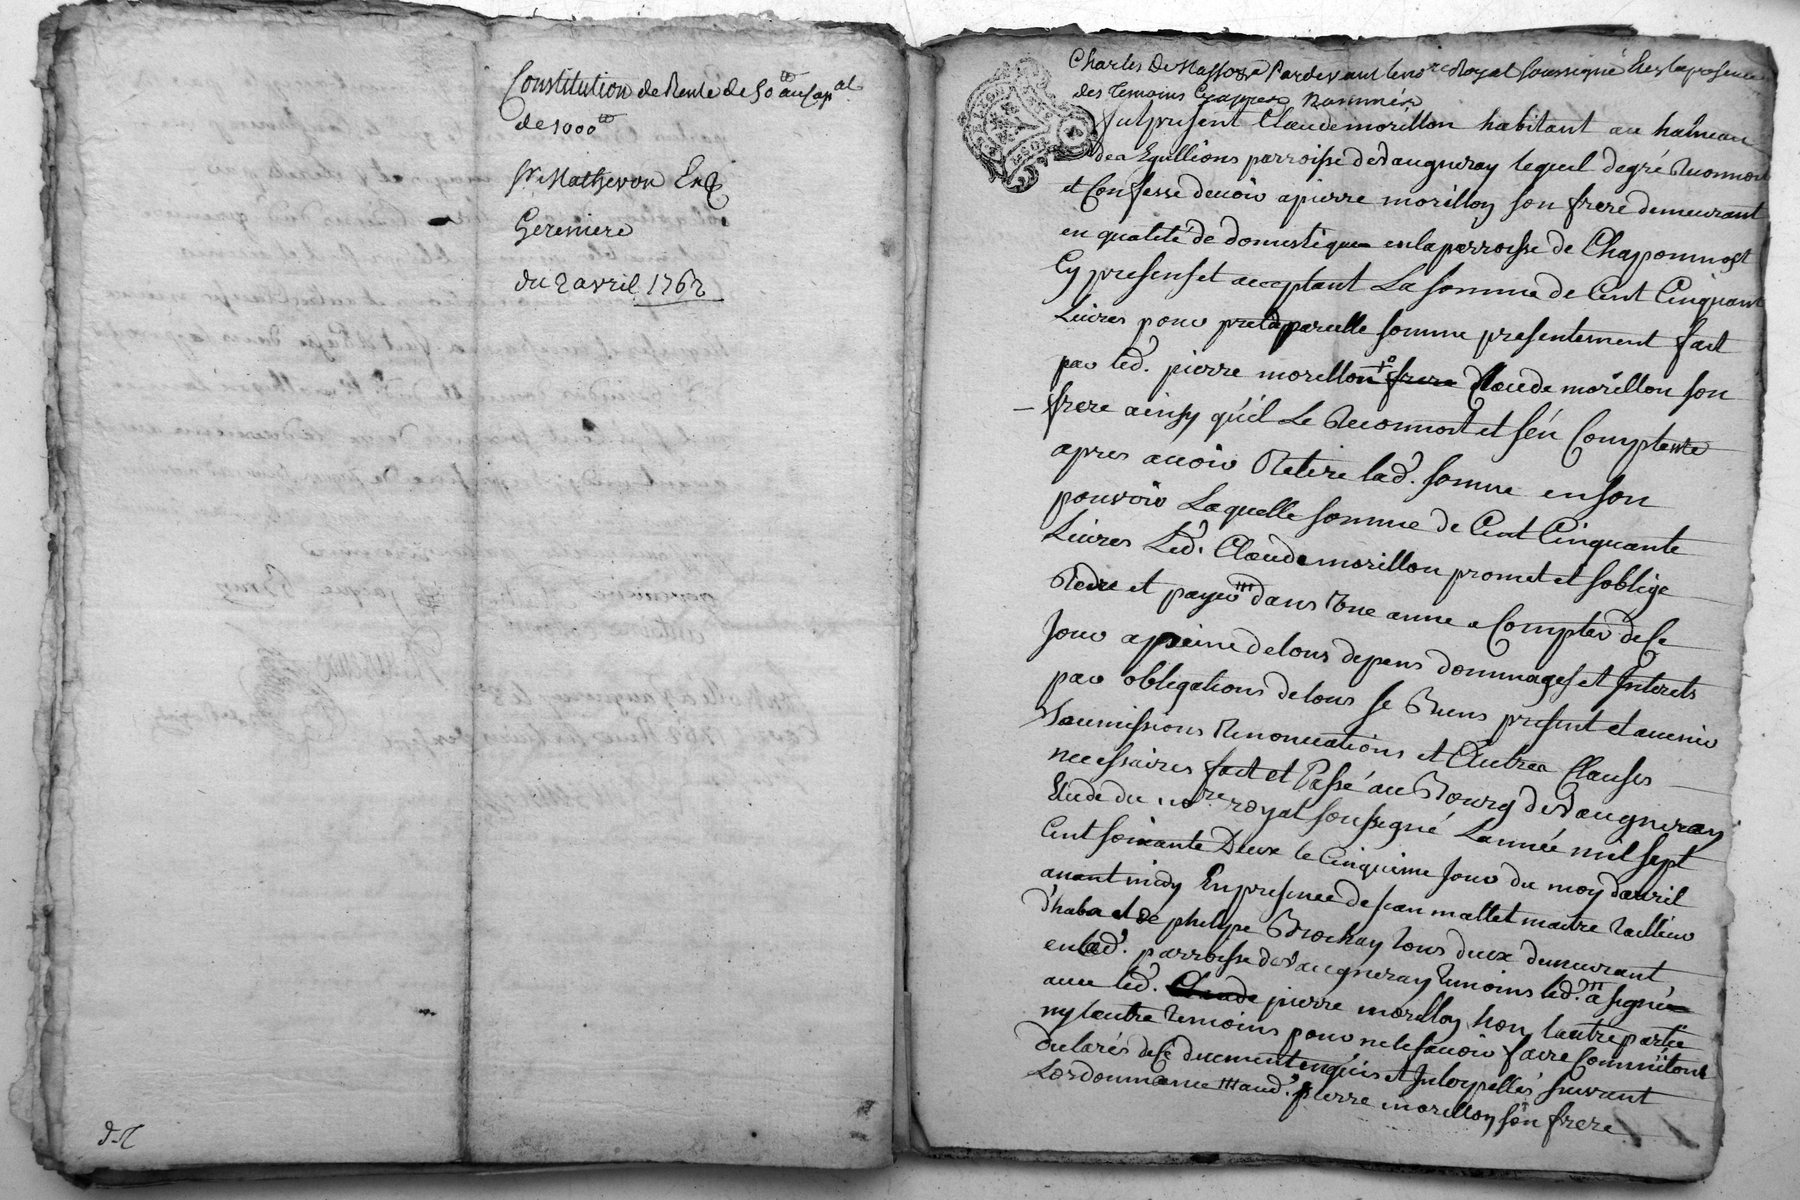 Constitution de Rente de 50 tt au Cap.al
de 1000 tt
Sr Mathevon Et
Geriniere
du 2 avril 1762
Charles De Nassosse Pardevant le no.re Royal soussigné Et en la presence
des temoins Cy apres Nommés
fut present Claude morillon habitant au hameau
des Eguillions parroisse de Vaugneray lequel de gré Reconnoit
et Confesse devoir a pierre morillon son frere demeurant
en qualité de domestique en la parroisse de Chaponnost
Cy present et acceptant La somme de Cent Cinquante
Livres pour pret de pareille somme presentement fait
par led. pierre morillon Claude morillon son
frere ainsy qu'il Le Reconnoit et s'en Comptente
apres avoir Retiré lad. somme en son
pouvoir Laquelle somme de Cent Cinquante
Livres Led. Claude morillon promet et s'oblige
Redre et payer dans Une anne a Compter de Ce
Jour a peine de tous depens dommages et Interets
par obligations de tous se Biens present et avenir
Soumissions Renonciations et Autres Clauses
necessaires fait et Passé au Bourg de Vaugneray
Etude du no.re royal soussigné Lannée mil sept
Cent soixante Deux le Cinquieme Jour du moy davril
avant midy En presence de jean mallet maitre tailleur
d'habs et de philype Brochay tous deux demeurant
en lad. parroisse de Vaugneray temoins led. m a signé
avec led. pierre morillon non lautre partie
ny lautre temoins pour ne le savoir faire Comm'il ont
declarés de Ce duement enquis et Interpellés suivant
Lordonnance aud. pierre morillon son frere
d-R